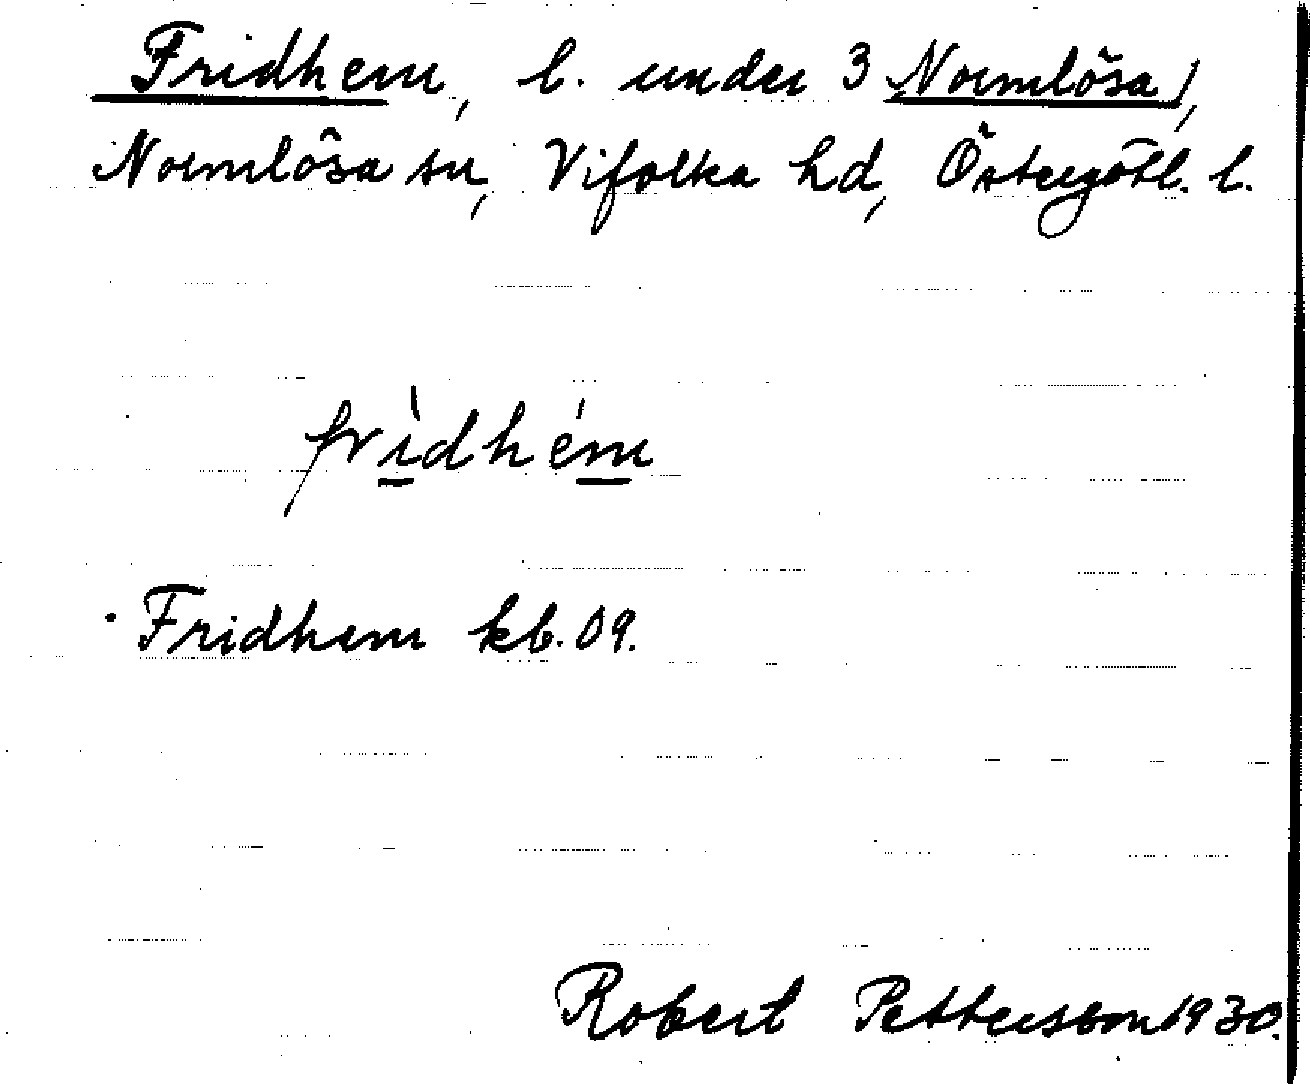 Fridhem, l. under 3 Normlösa /,
Normlösa sn, Vifolka hd, Östergötl. l.
frìdhém
Fridhem kb. 09.
Robert Pettersson 1930.